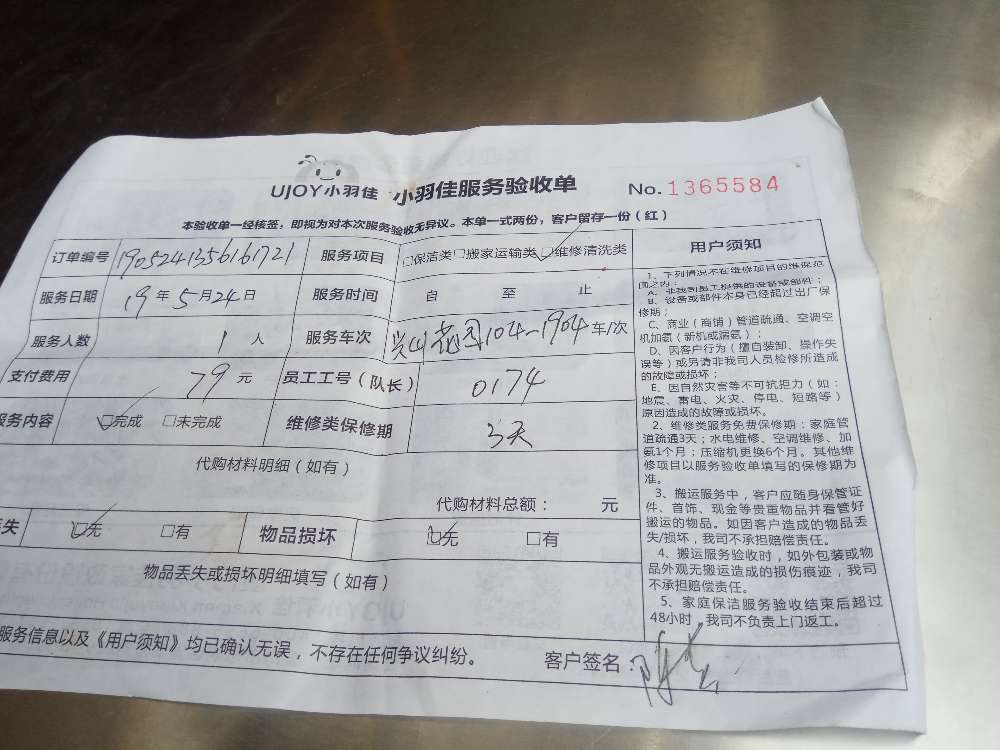 UJOY小羽佳 小羽佳服务验收单 No. 1365584
本验收单一经核签，即视为对本次服务验收无异议。本单一式两份，客户留存一份（红）
订单编号 1905241356161721 服务项目 □保洁类□搬家运输类□维修清洗类
服务日期 19年5月24日 服务时间 自 至 止
服务人数 1人 服务车次 花园104-1904车/次
支付费用 79元 员工工号（队长） 0174
服务内容 □完成 □未完成 维修类保修期 3天
代购材料明细（如有）
代购材料总额： 元
失 □无 □有 物品损坏 □无 □有
物品丢失或损坏明细填写（如有）
服务信息以及《用户须知》均已确认无误，不存在任何争议纠纷。 客户签名：
用户须知
1、下列情况不在维修项目的维保范
围之内：
A、非我司员工提供的设备或部件；
B、设备或部件本身已经超过出厂保
修期；
C、商业（商铺）管道疏通、空调空
机加氨（新机或漏氨）；
D、因客户行为（擅自装卸、操作失
误等）或另请非我司人员检修所造成
的故障或损坏；
E、因自然灾害等不可抗拒力（如：
地震、雷电、火灾、停电、短路等）
原因造成的故障或损坏。
2、维修类服务免费保修期：家庭管
道疏通3天；水电维修、空调维修、加
氨1个月；压缩机更换6个月。其他维
修项目以服务验收单填写的保修期为
准。
3、搬运服务中，客户应随身保管证
件、首饰、现金等贵重物品并看管好
搬运的物品。如因客户造成的物品丢
失/损坏，我司不承担赔偿责任。
4、搬运服务验收时，如外包装或物
品外观无搬运造成的损伤痕迹，我司
不承担赔偿责任。
5、家庭保洁服务验收结束后超过
48小时，我司不负责上门返工。